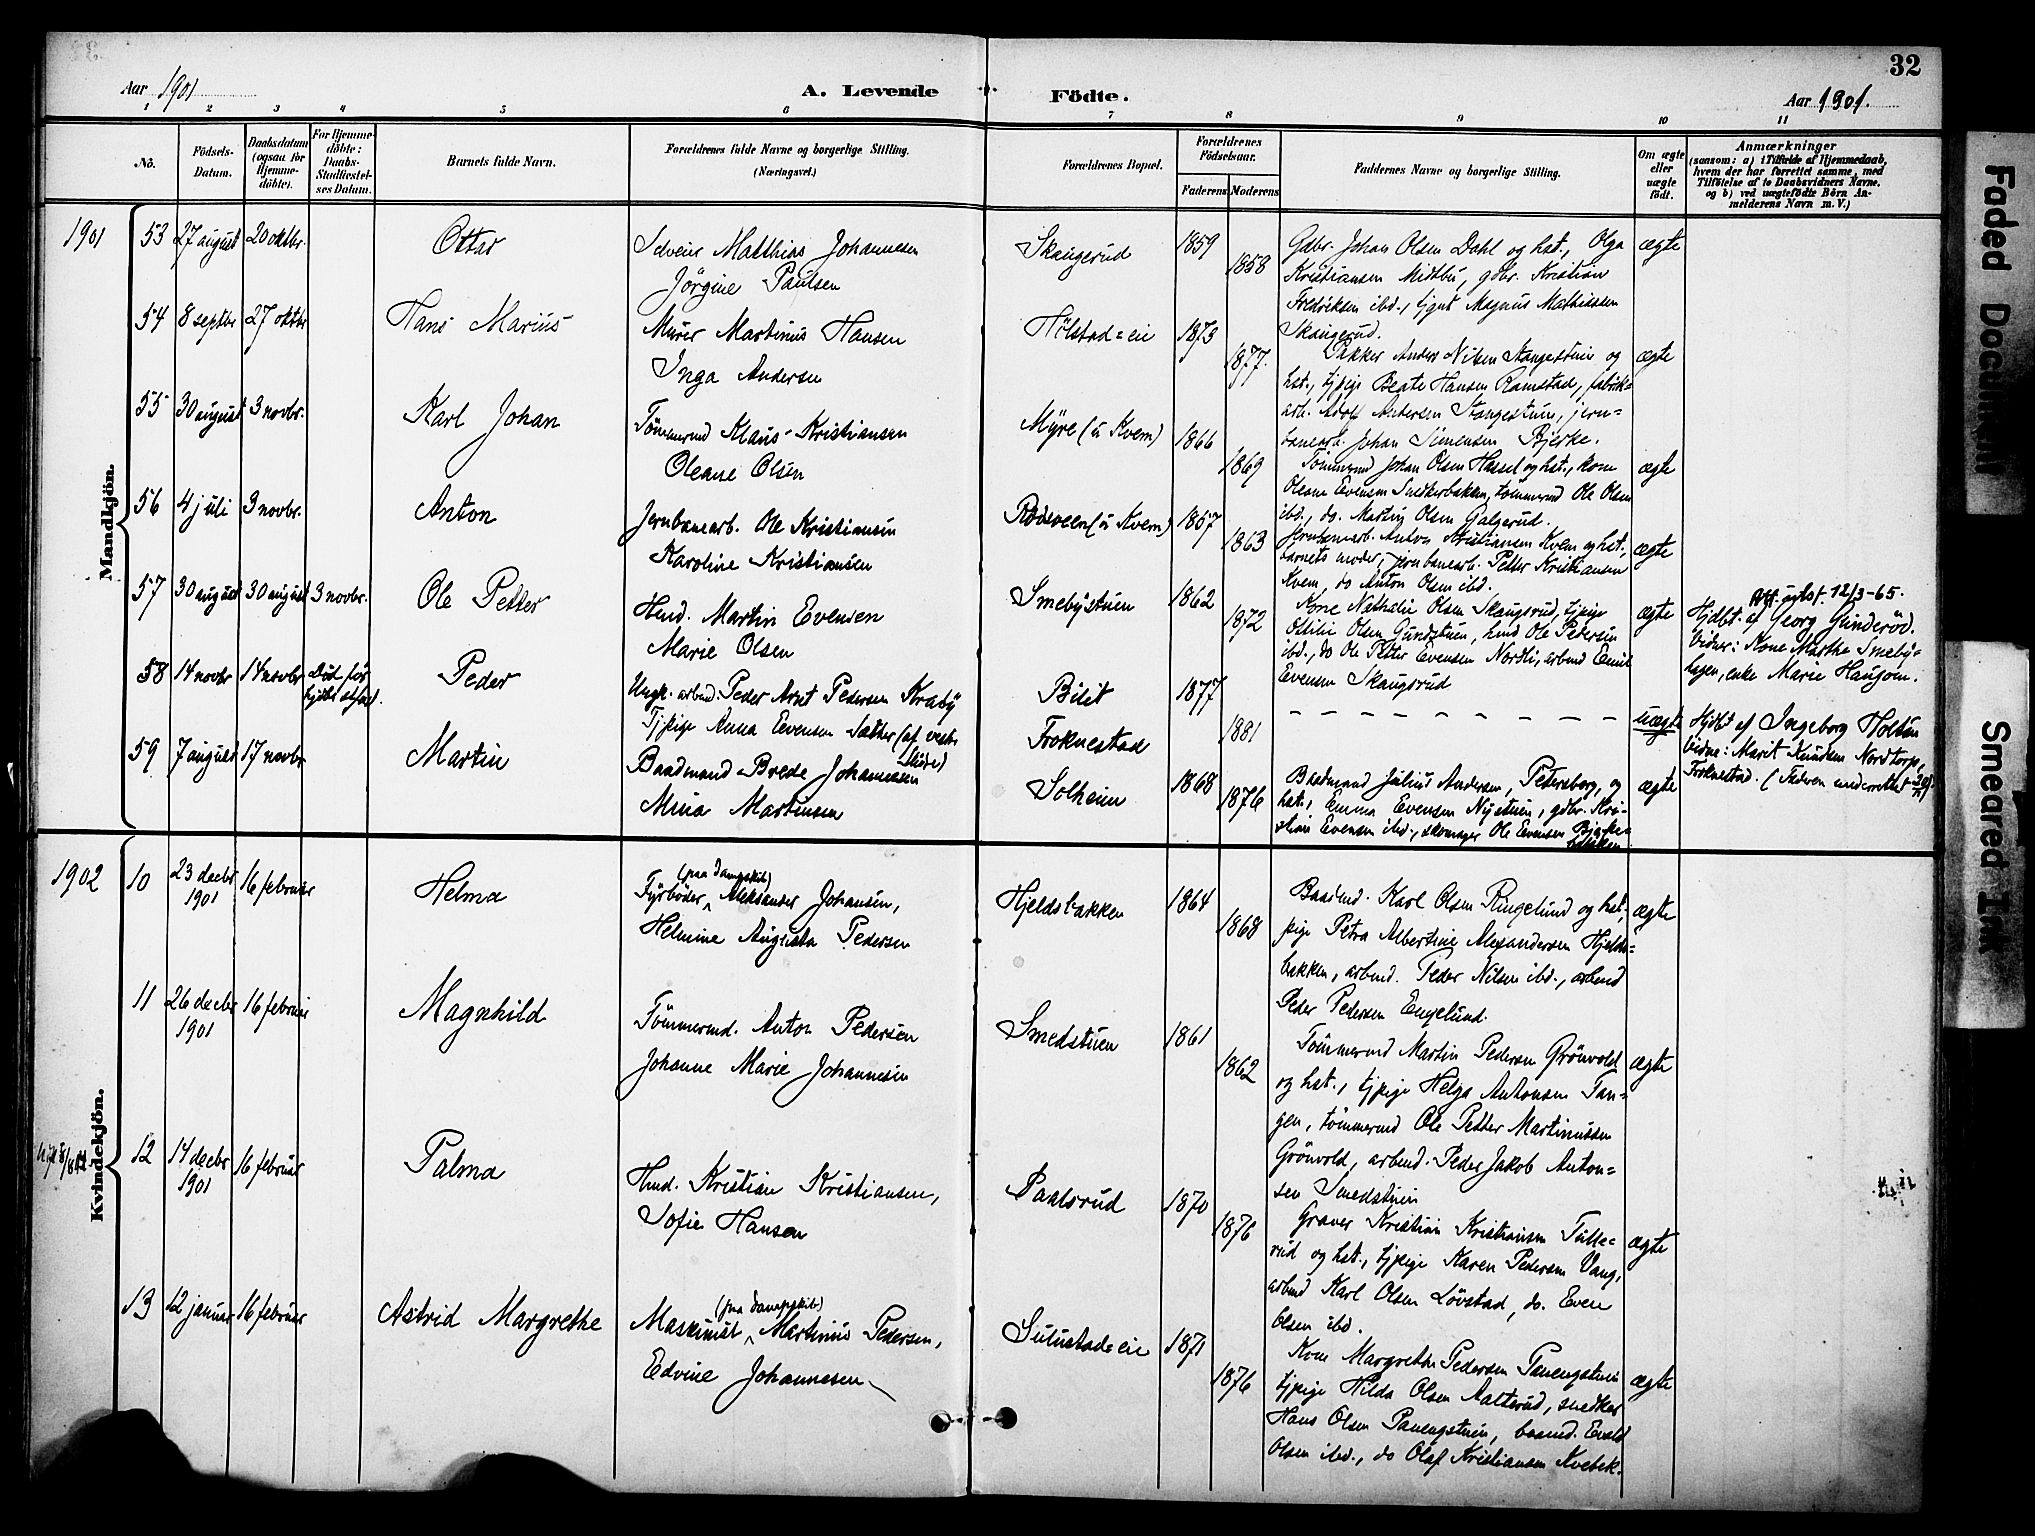 32
Aar 1901
A. Levende Födte.
Aar 1901.
1 2 3 4 5 6 7 8 9 10 11
No.
Födsels-Datum.
Daabsdatum (ogsaa for Hjemme-döbte).
For Hjemme-döbte: Daabs-Stadfæstel-ses Datum.
Barnets fulde Navn.
Forældrenes fulde Navne og borgerlige Stilling. (Næringsvei.)
Forældrenes Bopæl.
Forældrenes Födselsaar.
Faderens Moderens
Faddernes Navne og borgerlige Stilling.
Om ægte eller uægte født.
Anmærkninger
(saasom: a) i Tilfælde af Hjemmedaab,
hvem der har forrettet samme, med
Tilföielse af to Daabsvidners Navne,
og b) ved uægtefödte Börn An-
melderens Navn m. V.)
Mandkjön.
1901 53 27 august 20 oktbr. Ottar
Selveier Matthias Johannesen
Jörgine Paulsen
Skaugerud 1859 1858
Gdbr. Johan Olsen Dahl og hst., Olga
Kristiansen Midtbü, gdbr. Kristian
Fredriksen ibd., tjgut Magnus Mathissen
Skaugerud.
ægte
54 8 septbr 27 oktbr Hans Marius
Murer Martinus Hansen
Inga Andersen
Hölstad=eie 1873 1877.
Pakker Anders Nilsen Stangestuen og
hst., tjpige Beate Hansen Ramstad, fabrik=
arb. Adolf Andersen Stangestuen, jern=
banearb. Johan Simensen Bjerke.
ægte
55 30 august 3 novbr. Karl Johan
Tömmermd Klaus Kristiansen
Oleane Olsen
Myre (u Kvem) 1866 1869
Tömmermd Johan Olsen Hassel og hst., kone
Oleane Evensen Snedkerbakken, tömmermd Ole Olsen
ibd., do. Martin Olsen Galgerud.
ægte
56 4 juli 3 novbr. Anton
Jernbanearb. Ole Kristiansen
Karoline Kristiansen
Rödsveen (u Kvem) 1867 1863
Jernbanearb. Anton Kristiansen Kvem og hst.,
barnets moder, jernbanearb. Petter Kristiansen
Kvem, do Anton Olsen ibd.
ægte
57 30 august 30 august 3 novbr. Ole Petter
Hmd. Martin Evensen
Marie Olsen
Smebystuen 1862 1872
Kone Nathalie Olsen Skaugsrud, tjpige
Ottilie Olsen Gundstuen, hmd Ole Pedersen
ibd., do Ole Petter Evensen Nordli, arbmd Emil
Evensen Skaugsrud
ægte
Att. utst. 12/3-65.
Hjdbt. af Georg Gunderöd.
Vidner: Kone Marthe Smeby=
hagen, enke Marie Haugom.
58 14 novbr 14 novbr Död för Peder
Ungk. arbmd. Peder Arnt Pedersen Kraby
Tjpige Anna Evensen Sæther (af vestre
Bilit 1877
Froknestad 1881
uægte
Hjdbt af Ingeborg Holsten
Vidne: Marit Knudsen Nordtorp,
Froknestad. (Faderen underrettet
59 7 august 17 novbr Martin
Baadmand Brede Johannesen
Mina Martinsen
Solheim 1868 1876
Baadmand Julius Andersen, Petersborg, og
hst., Emma Evensen Nystuen, gdbr. Kri=
stian Evensen ibd., skomager Ole Evensen Bjerke=
bakken
ægte
Kvindekjön.
1902 10 23 decbr 1901 16 februar Helma
(paa Dampskib)
Fyrböder Aleksander Johansen,
Helmine Augusta Pedersen
Hjeldsbakken 1864 1868
Baadmd. Karl Olsen Ringelund og hst.
pige Petra Albertine Alexandersen Hjelds=
bakken, arbmd. Peder Nilsen ibd., arbmd
Peder Pedersen Engelund.
ægte
11 26 decbr 1901 16 februar Magnhild
Tömmermd. Anton Pedersen
Johanne Marie Johannesen
Smedstuen 1861 1862
Tömmermd Martin Pedersen Grönvold
og hst., tjpige Helga Antonsen Tan=
gen, tömmermd Ole Petter Martinussen
Grönvold, arbmd. Peder Jakob Anton=
sen Smedstuen
ægte
12 14 decbr 1901 16 februar Palma
Hmd. Kristian Kristiansen,
Sofie Hansen
Paalsrud 1870 1876
Graver Kristian Kristiansen Tulle=
rud og hst., tjpige Karen Pedersen Vang,
arbmd Karl Olsen Lövstad, do. Even
Olsen ibd.
ægte
13 12 januar 16 februar Astrid Margrethe
(paa Dampskib)
Maskinist Martinius Pedersen,
Edvine Johannesen
Sulustad=eie 1871 1876
Kone Margrethe Pedersen Panengstuen
tjpige Hilda Olsen Aalterud, snedker
Hans Olsen Panengstuen, baadmd. Evald
Olsen ibd., do Olaf Kristiansen Kvebek.
ægte
Faded Document
Smeared Ink